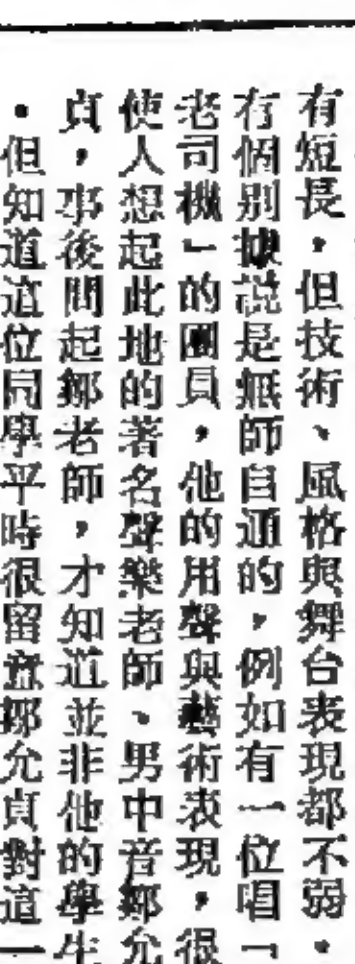 有短長，但技術、風格與舞台表現都不弱。
有個別據說是無師自通的，例如有一位唱「
老司機」的團員，他的用聲與藝術表現，很
使人想起此地的著名聲樂老師、男中音鄺允
貞，事後問起鄺老師，才知道並非他的學生
。但知道這位同學平時很留意鄺允貞對這一